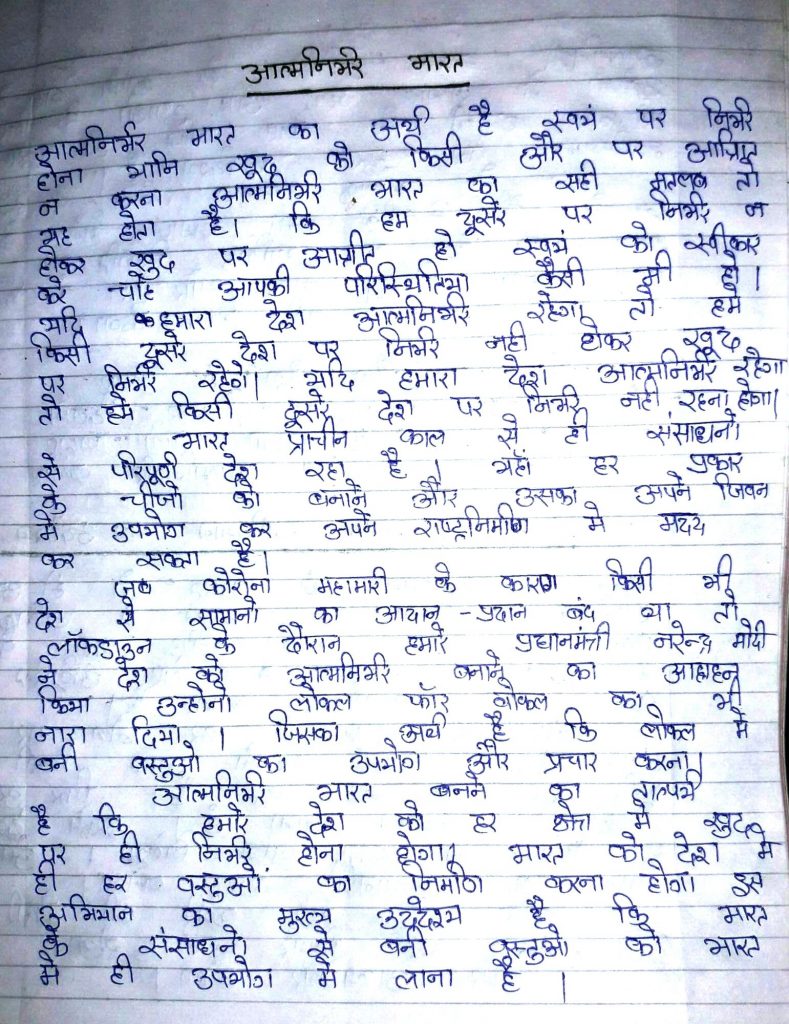 आत्मनिर्भर भारत
आत्मनिर्भर भारत का अर्थ है स्वयं पर निर्भर
होना यानि खूद को किसी और पर आश्रित
न करना आत्मनिर्भर भारत का सही मतलब तो
यह होता है। कि हम दूसरे पर निर्भर न
होकर खुद पर आश्रीत हो स्वयं को स्वीकार
करे चाहे आपकी परिस्थितिया कैसी भी हो।
यदि हमारा देश आत्मनिर्भर रहेगा तो हमे
किसी दूसरे देश पर निर्भर नही होकर खूद
पर निर्भर रहेगे। यदि हमारा देश आत्मनिर्भर रहेगा
तो हमे किसी दूसरे देश पर निर्भर नही रहना होगा।
भारत प्राचीन काल से ही संसाधनो
से परिपूर्ण देश रहा है। यहाँ हर प्रकार
के चीजो को बनाने और उसका अपने जिवन
मे उपभोग कर अपने राष्ट्रनिर्माण मे मदद
कर सकता है।
जब कोरोना महामारी के कारण किसी भी
देश से सामानो का आदान - प्रदान बंद था तो
लॉकडाउन के दौरान हमारे प्रधानमंत्री नरेन्द्र मोदी
ने देश को आत्मनिर्भर बनाने का
किया उन्होनो लोकल फॉर वोकल का भी
नारा दिया। जिसका अर्थ है कि लोकल मे
बनी वस्तुओ का उपभोग और प्रचार करना।
आत्मनिर्भर भारत बनने का तात्पर्य
है कि हमारे देश को हर क्षेत्र मे खुद
पर ही निर्भर होना होगा। भारत को देश मे
ही हर वस्तुओं का निर्माण करना होगा। इस
अभियान का मुख्य उद्देश्य है कि भारत
के संसाधनो से बनी वस्तुओ को भारत
मे ही उपभोग मे लाना है।